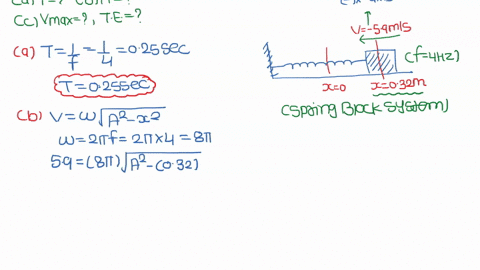 Cc) Vmax=?, T.E=?
(a) T=1/f=1/4=0.25sec
T=0.25sec
(b) V=ω√A²-x²
ω=2πf=2π×4=8π
59=(8π)√A²-(0.32)
V=-59m/s
(f=4Hz)
x=0 x=0.32m
(Spring Block System)